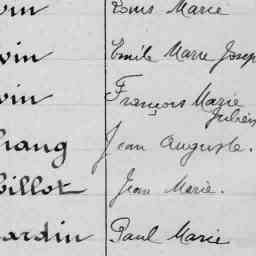 vin Louis Marie
vin Emile Marie Josep
vin François Marie
Julien
hang Jean Auguste.
billot Jean Marie.
ardin Paul Marie